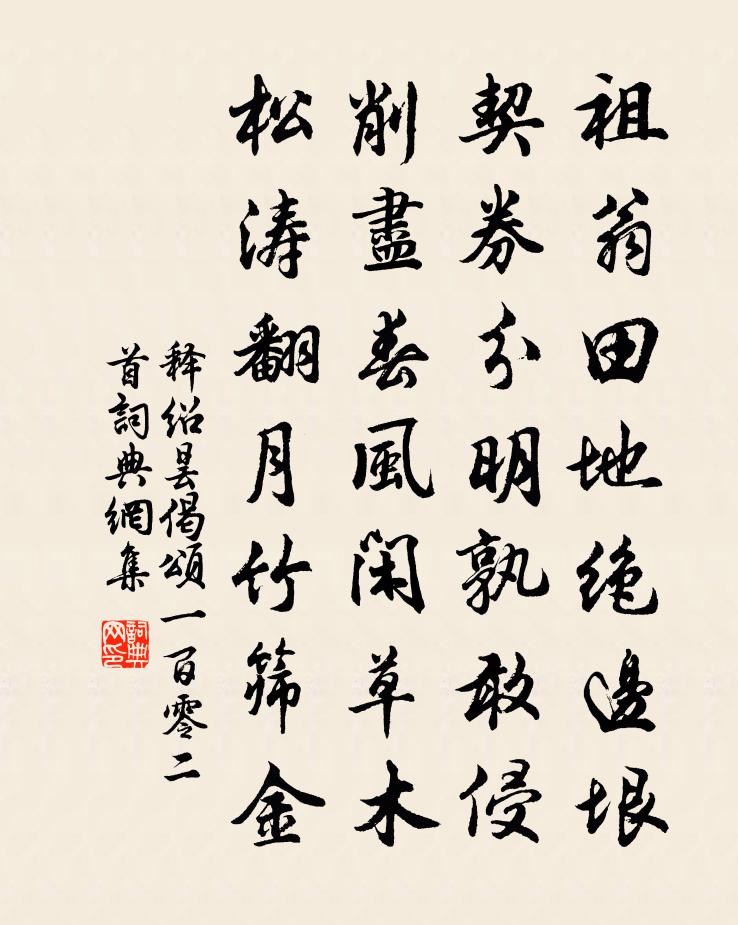 祖翁田地绝邊垠
契券分明孰敢侵
削盡春風閑草木
松涛翻月竹筛金
释绍昙偈頌一百零二
首詞典網集
詞典网印